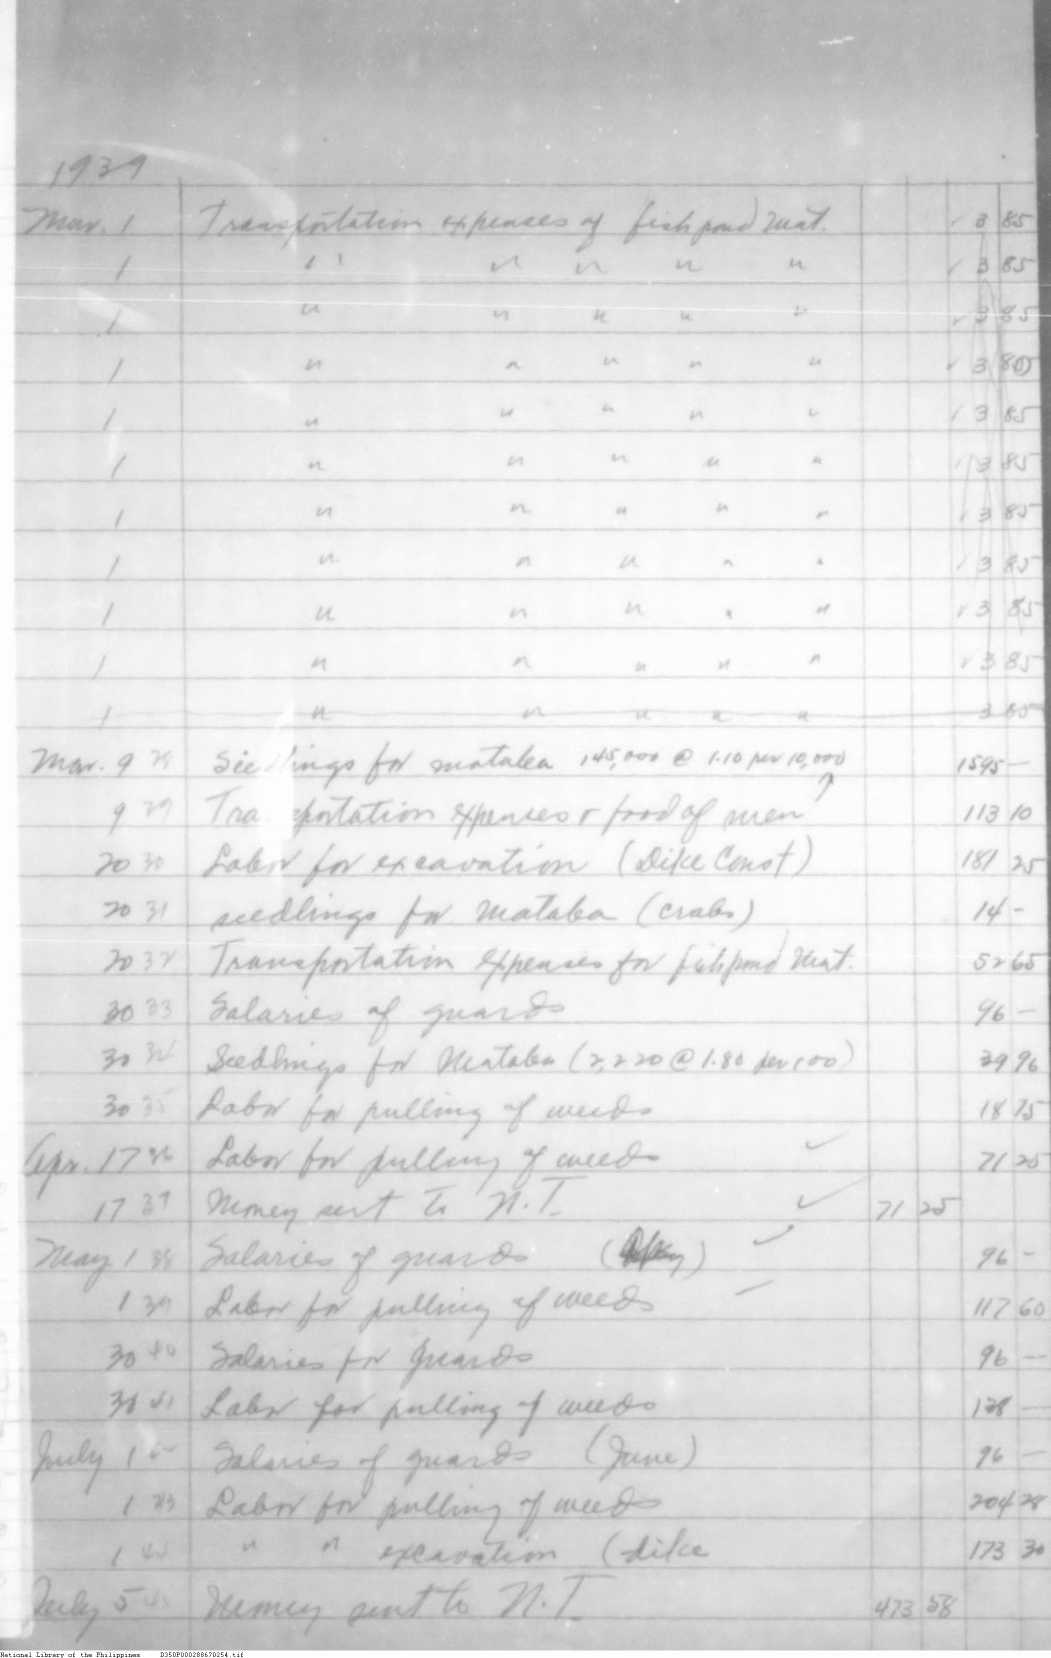 1939
Mar. 1 Transportation expenses of fishpond Mat. ✓ 3 85
1 " " " " " ✓ 3 85
1 " " " " " ✓ 3 85
1 " " " " " ✓ 3 85
1 " " " " " ✓ 3 85
1 " " " " " ✓ 3 85
1 " " " " " ✓ 3 85
1 " " " " " ✓ 3 85
1 " " " " " ✓ 3 85
1 " " " " " ✓ 3 85
1 " " " " " 3 85
Mar. 9 28 Seedlings for mataba 145,000 @ 1.10 per 10,000 1595 —
9 29 Transportation expenses & food of men 113 10
20 30 Labor for excavation (Dike Const) 181 25
20 31 seedlings for Mataba (crabs) 14 -
20 32 Transportation expenses for fishpond Mat. 52 65
30 33 Salaries of guards 96 —
30 34 Seedlings for Mataba (2,220 @ 1.80 per 100) 39 96
30 35 Labor for pulling of weeds 18 75
Apr. 17 36 Labor for pulling of weeds ✓ 71 25
17 37 Money sent to N.T. ✓ 71 25
May 1 38 Salaries of guards ✓ 96 -
1 39 Labor for pulling of weeds 117 60
30 40 Salaries for Guards 96 —
30 41 Labor for pulling of weeds 128 —
July 1 Salaries of guards (June) 96 —
1 43 Labor for pulling of weeds 204 28
1 " " excavation (dike 173 30
July 5 Money sent to N.T. 473 58
National Library of the Philippines D350P000288670254.tif